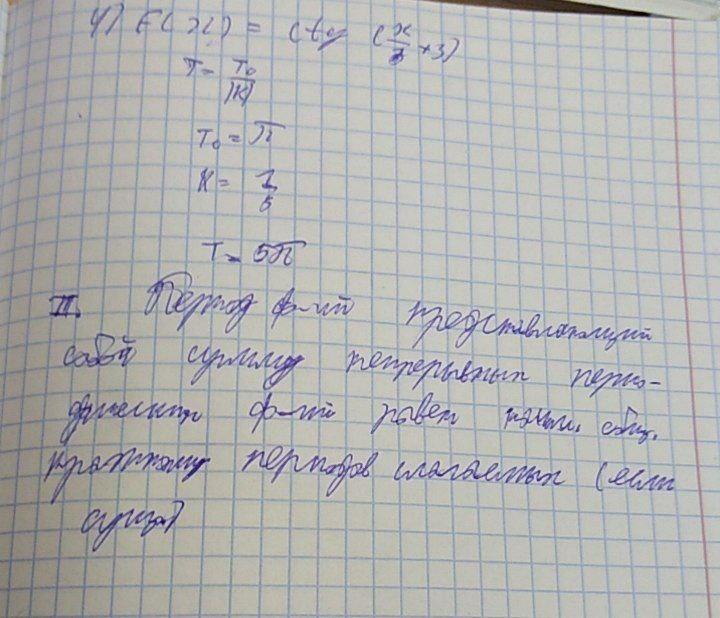 4) F(x) = ctg (x/5 +3)
T = T₀/|K|
T₀ = П
K = 1/5
T = 5П
II. Период ф-ий представляющий
собой сумму непрерывных перио-
дических ф-ий равен наим. общ.
кратному периодов слагаемых (если
сущ.)